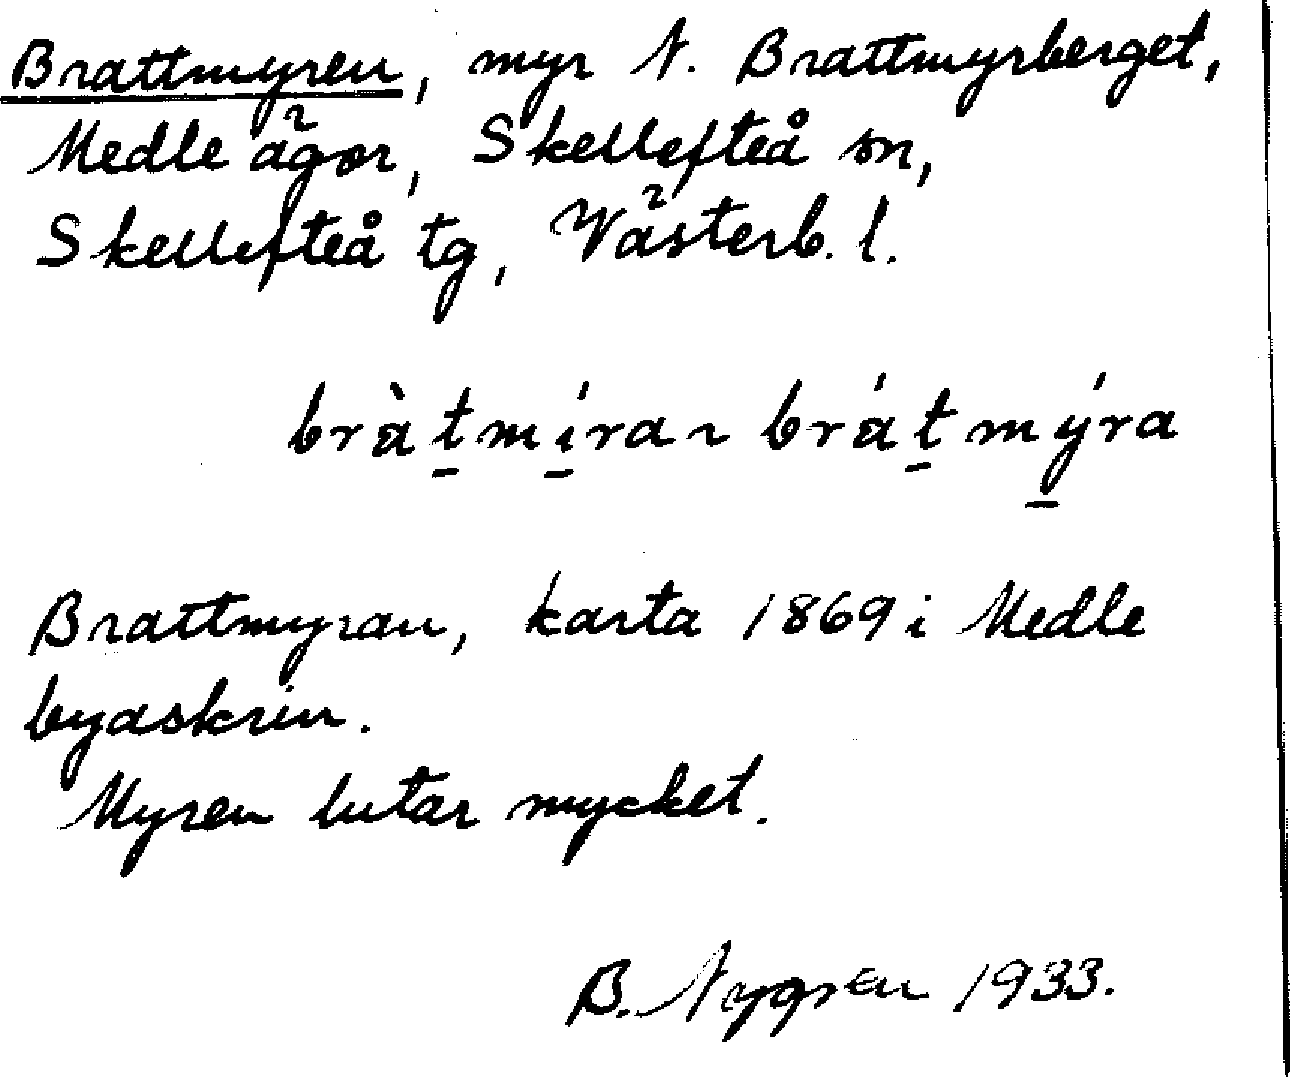 Brattmyren, myr N. Brattmyrberget,
Medle ägor, Skellefteå sn,
Skellefteå tg, Västerb. l.
bràt̠mí̠ra ~ brát̠mý̠ra
Brattmyran, karta 1869 i Medle
byaskrin.
Myren lutar mycket.
B. Nygren 1933.